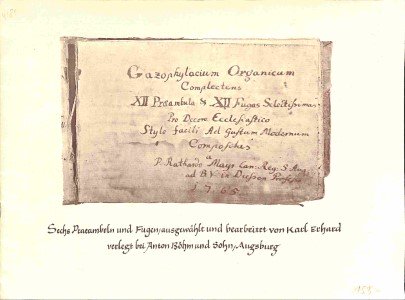 Gazophylacium Organicum
Complectens
XII Præambula & XII Fugas Selectissimas
Pro Decore Ecclesiastico
Stylo facili Ad Gustum Modernum
Composites
P. Rathardo a Mayr Can: Reg: S. Aug:
ad B V in Diessen Profess
1765
Sechs Praeambeln und Fugen/ausgewählt und bearbeitet von Karl Erhard
verlegt bei Anton Böhm und Sohn/Augsburg